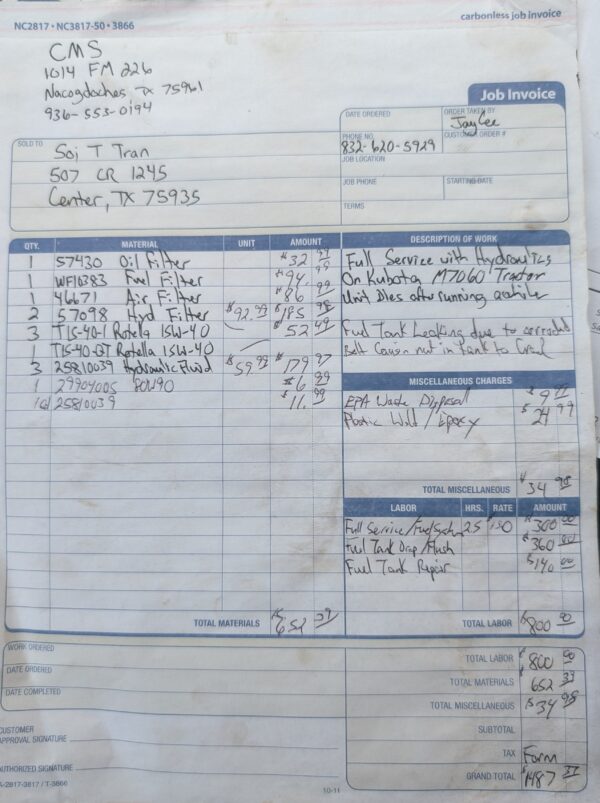 NC2817 • NC3817-50 • 3866
carbonless job invoice
CMS
1014 FM 226
Nacogdoches Tx 75961
936-553-0194
Job Invoice
DATE ORDERED
ORDER TAKEN BY
JayCee
PHONE NO.
832-620-5929
CUSTOMER ORDER #
SOLD TO
Soi T Tran
507 CR 1245
Center, TX 75935
JOB LOCATION
JOB PHONE
STARTING DATE
TERMS
QTY. MATERIAL UNIT AMOUNT
1 57430 Oil Filter $32.99
1 WF10383 Fuel Filter $94.99
1 46671 Air Filter $86.99
2 57098 Hyd Filter $92.99 $185.98
3 T15-40-1 Rotella 15W-40 $52.49
1 T15-40-QT Rotella 15W-40
3 25810039 Hydraulic Fluid $59.99 $179.97
1 29904005 80W90 $6.99
1 25810039 $11.99
TOTAL MATERIALS $652.39
DESCRIPTION OF WORK
Full Service with Hydraulics
On Kubota M7060 Tractor
Unit Dies after running awhile
Fuel Tank Leaking due to corroded
Bolt Causin nut in tank to
MISCELLANEOUS CHARGES
EPA Waste Disposal $9.99
Plastic Weld / Epoxy $24.99
TOTAL MISCELLANEOUS $34.98
LABOR HRS. RATE AMOUNT
Full Service/Fuel System 2.5 $300.00
Fuel Tank Drop/Flush $360.00
Fuel Tank Repair $140.00
TOTAL LABOR $800.00
WORK ORDERED
DATE ORDERED
DATE COMPLETED
CUSTOMER
APPROVAL SIGNATURE
AUTHORIZED SIGNATURE
A-2817-3817 / T-3866
10-11
TOTAL LABOR $800.00
TOTAL MATERIALS 652.39
TOTAL MISCELLANEOUS $34.98
SUBTOTAL
TAX Farm
GRAND TOTAL $1487.37